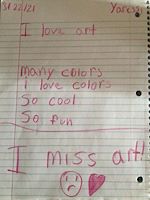 I love art
Many colors
i love colors
So cool
So fun
I miss art!